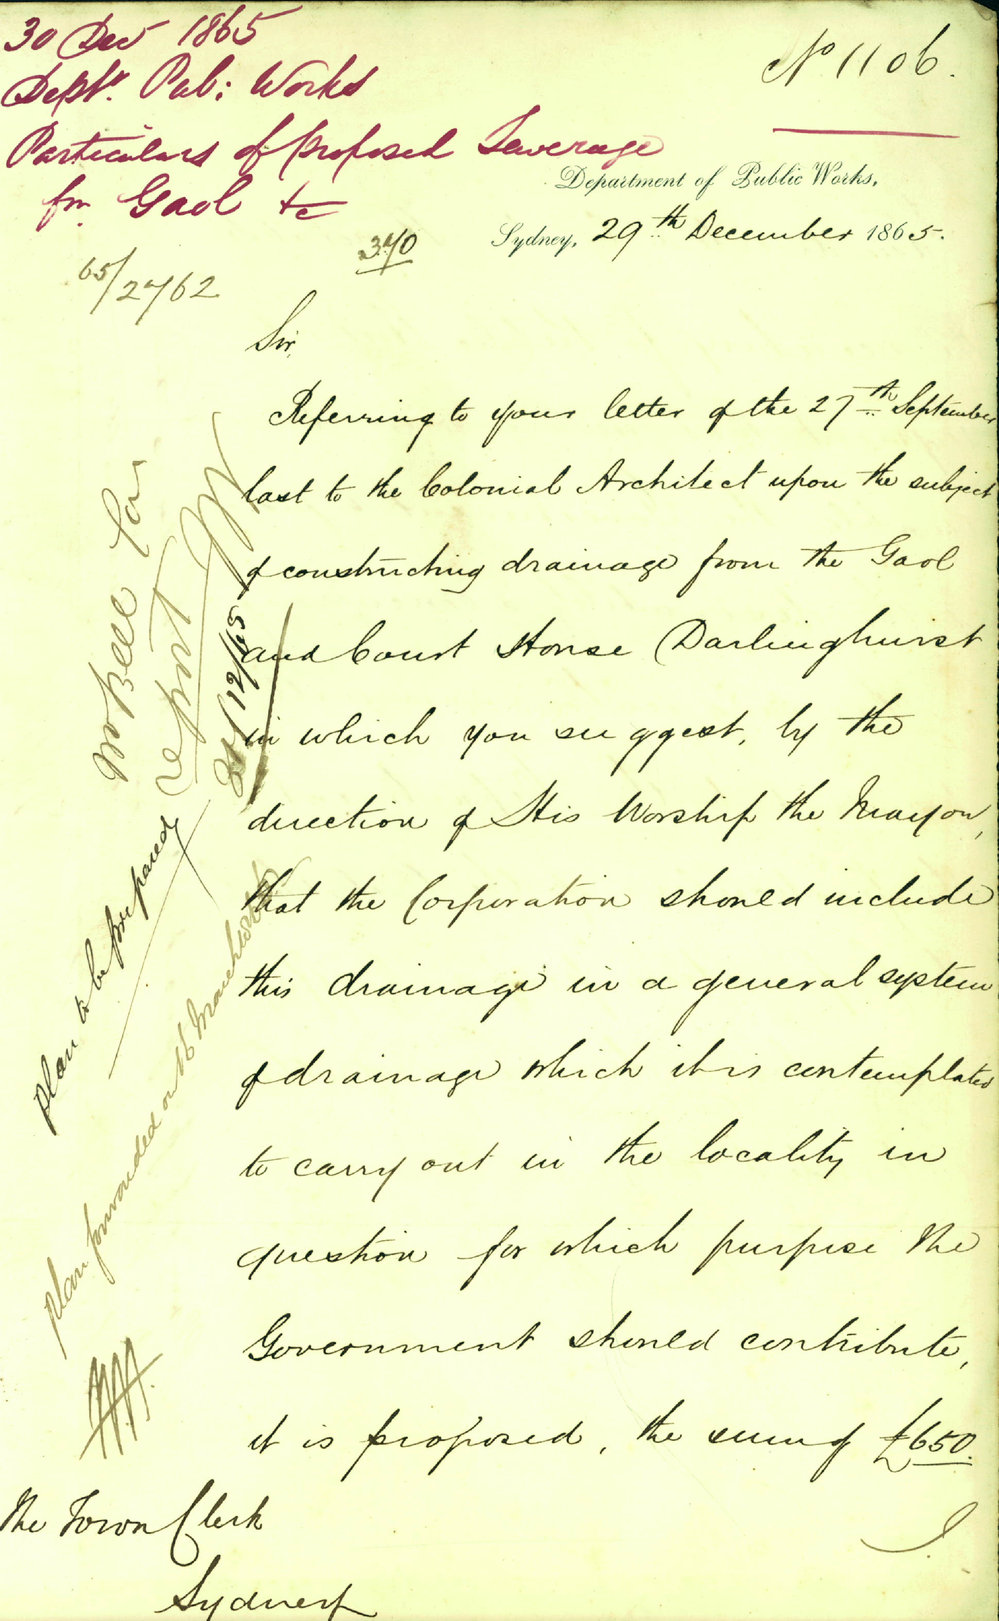 30 Dec 1865
Dept. Pub: Works
Particulars of proposed Sewerage
for Gaol &c
No 1106.
Department of Public Works,
Sydney, 29th December 1865.
370
65/2762
Sir,
Referring to your letter of the 27th September
last to the Colonial Architect upon the subject
of constructing drainage from the Gaol
and Court House Darlinghurst
in which you suggest, by the
direction of His Worship the Mayor,
that the Corporation should include
this drainage in a general system
of drainage which it is contemplated
to carry out in the locality in
question for which purpose the
Government should contribute,
it is proposed, the sum of £650.
The Town Clerk
Sydney
Mr Bell for
report
12/65
plan to be prepared
plan forwarded on 16 March